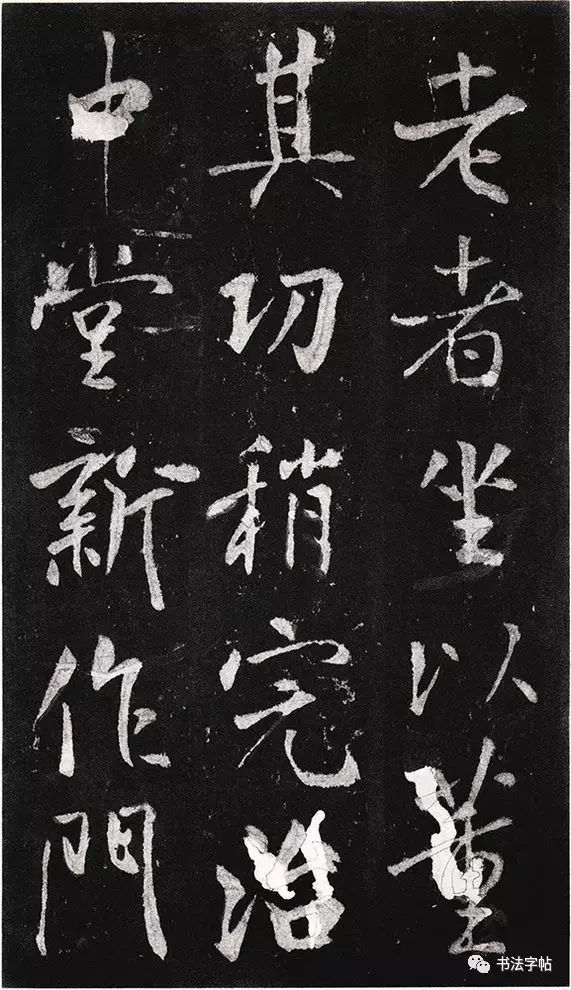 老者坐以董
其功稍完治
中堂新作門
书法字帖